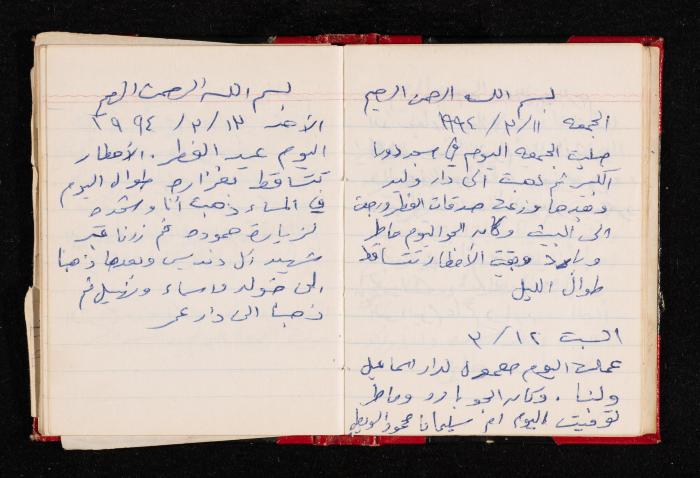 بسم الله الرحمن الرحيم
الجمعه ١١/٣/١٩٩٤
صليت الجمعه اليوم في مسجد دورا
الكبير ثم ذهبت الى دار وليد
وبعدها وزعت صدقات الفطر ورجعت
الى البيت وكان الجو اليوم ماطر
وبارد وبقيت الأمطار تتساقط
طوال الليل
السبت ١٢/٣
عملت اليوم معمول لدار اسماعيل
ولنا. وكان الجو بارد وماطر
توفيت اليوم ام سليمان محمود
بسم الله الرحمن الرحيم
الأحد ١٣/٣/١٩٩٤
اليوم عيد الفطر. الأمطار
تتساقط بغزاره طوال اليوم
في المساء ذهبت أنا و
لزيارة حموده ثم زرنا
شهيد آل دنديس وبعدها ذهبنا
الى خوله واسماء ونهيل ثم
ذهبنا الى دار عمر